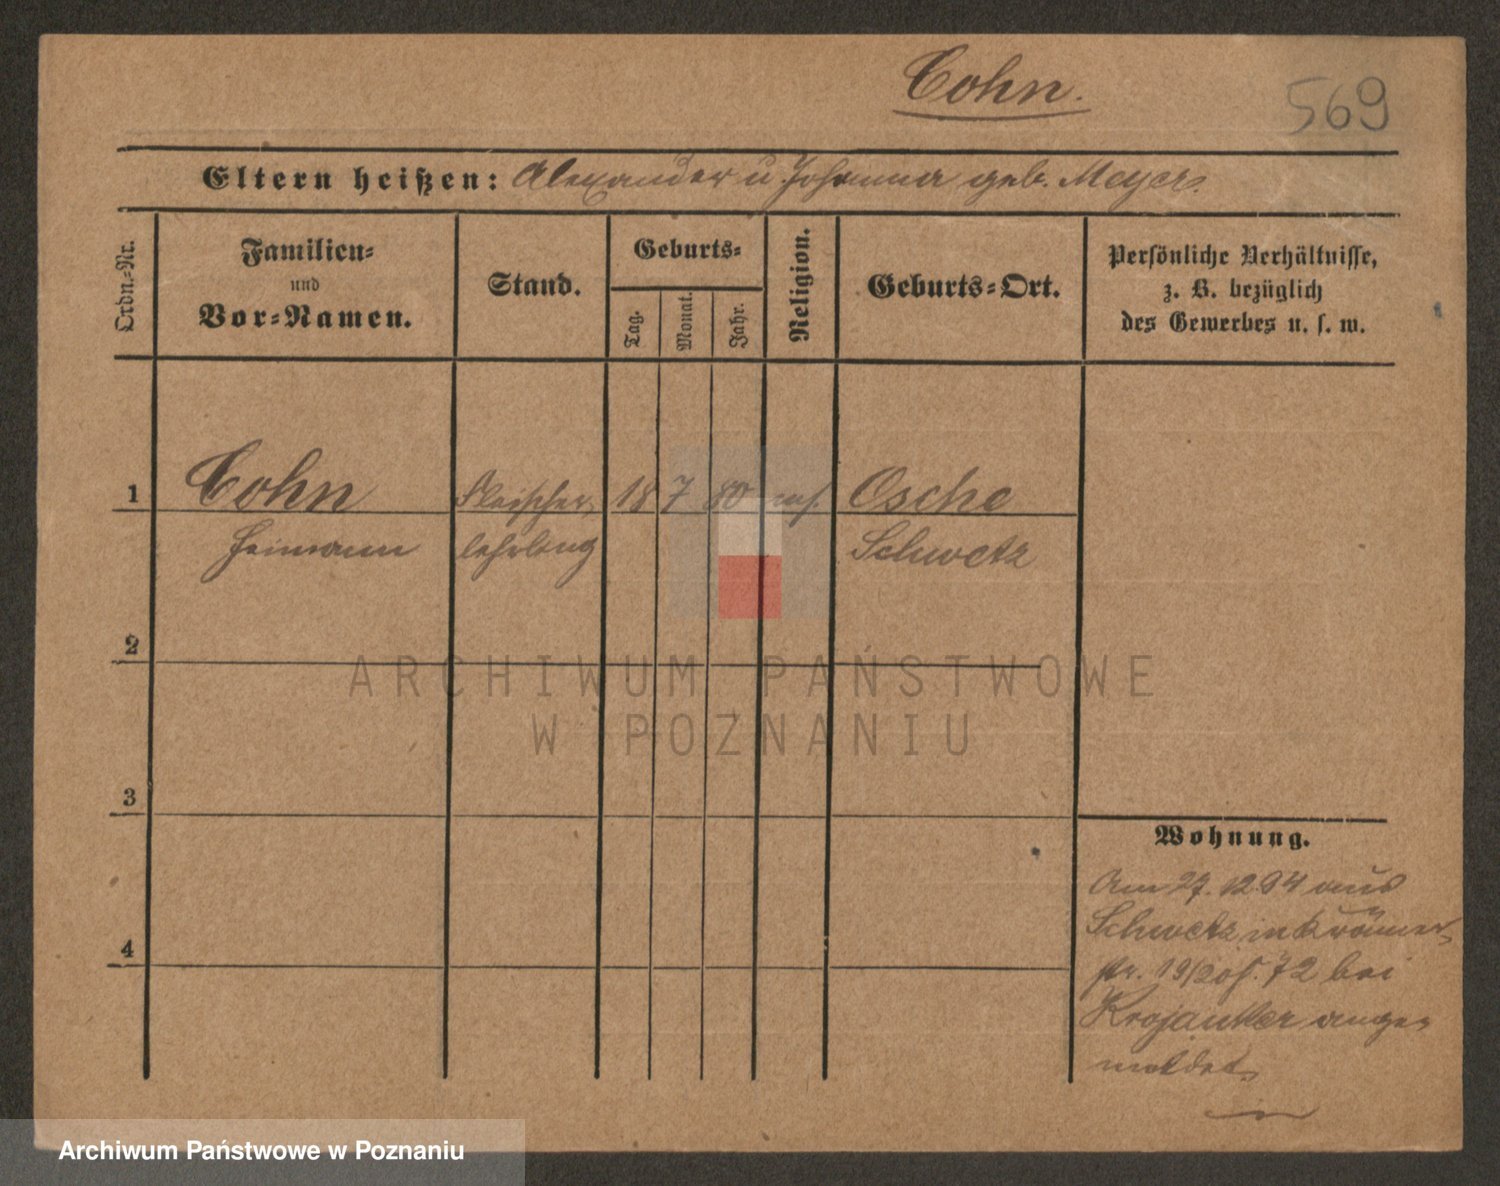 Cohn.
569
Eltern heißen: Alexander u. Johanna geb. Meyer.
Ordn.-Nr.
Familien-
und
Vor-Namen.
Stand.
Geburts-
Tag.
Monat.
Jahr.
Religion.
Geburts-Ort.
Persönliche Verhältnisse,
z. B. bezüglich
des Gewerbes u. s. w.
1
Cohn
Fleischer,
18
7
80
mos.
Osche
Heimann
lehrling
Schwetz
2
3
4
Wohnung.
Am 27.12.94 aus
Schwetz in Krämer,
str. 19/20 72 bei
Krojanker ange,
meldet.
ARCHIWUM PAŃSTWOWE
W POZNANIU
Archiwum Państwowe w Poznaniu